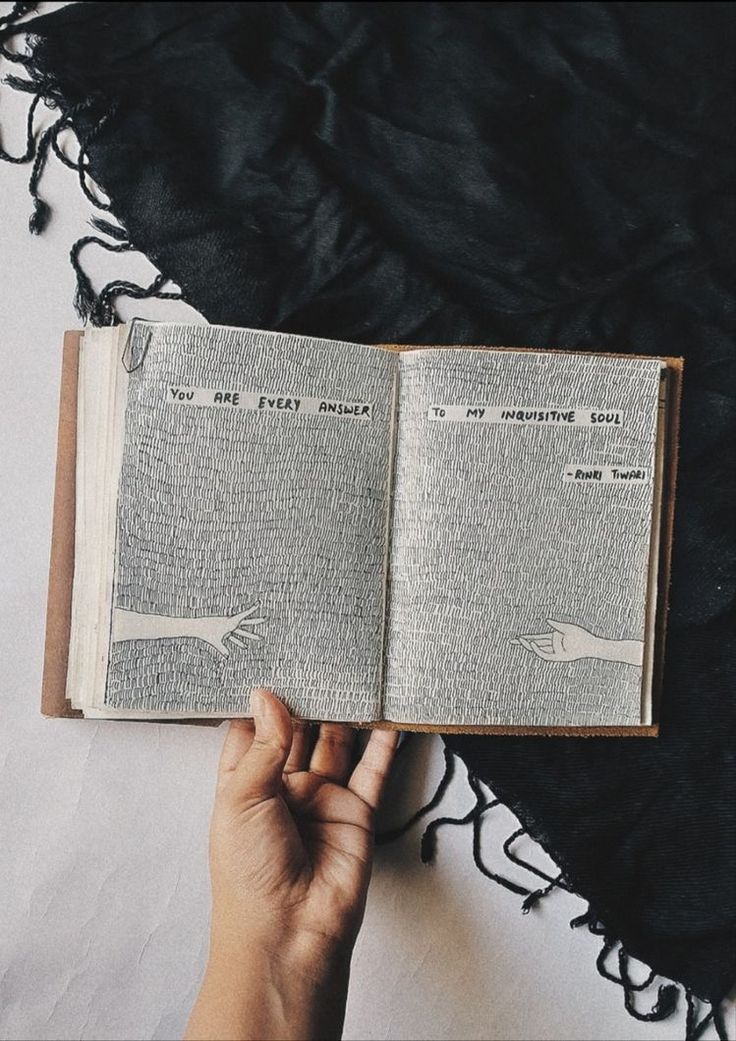 YOU ARE EVERY ANSWER
TO MY INQUISITIVE SOUL
-RINKI TIWARI